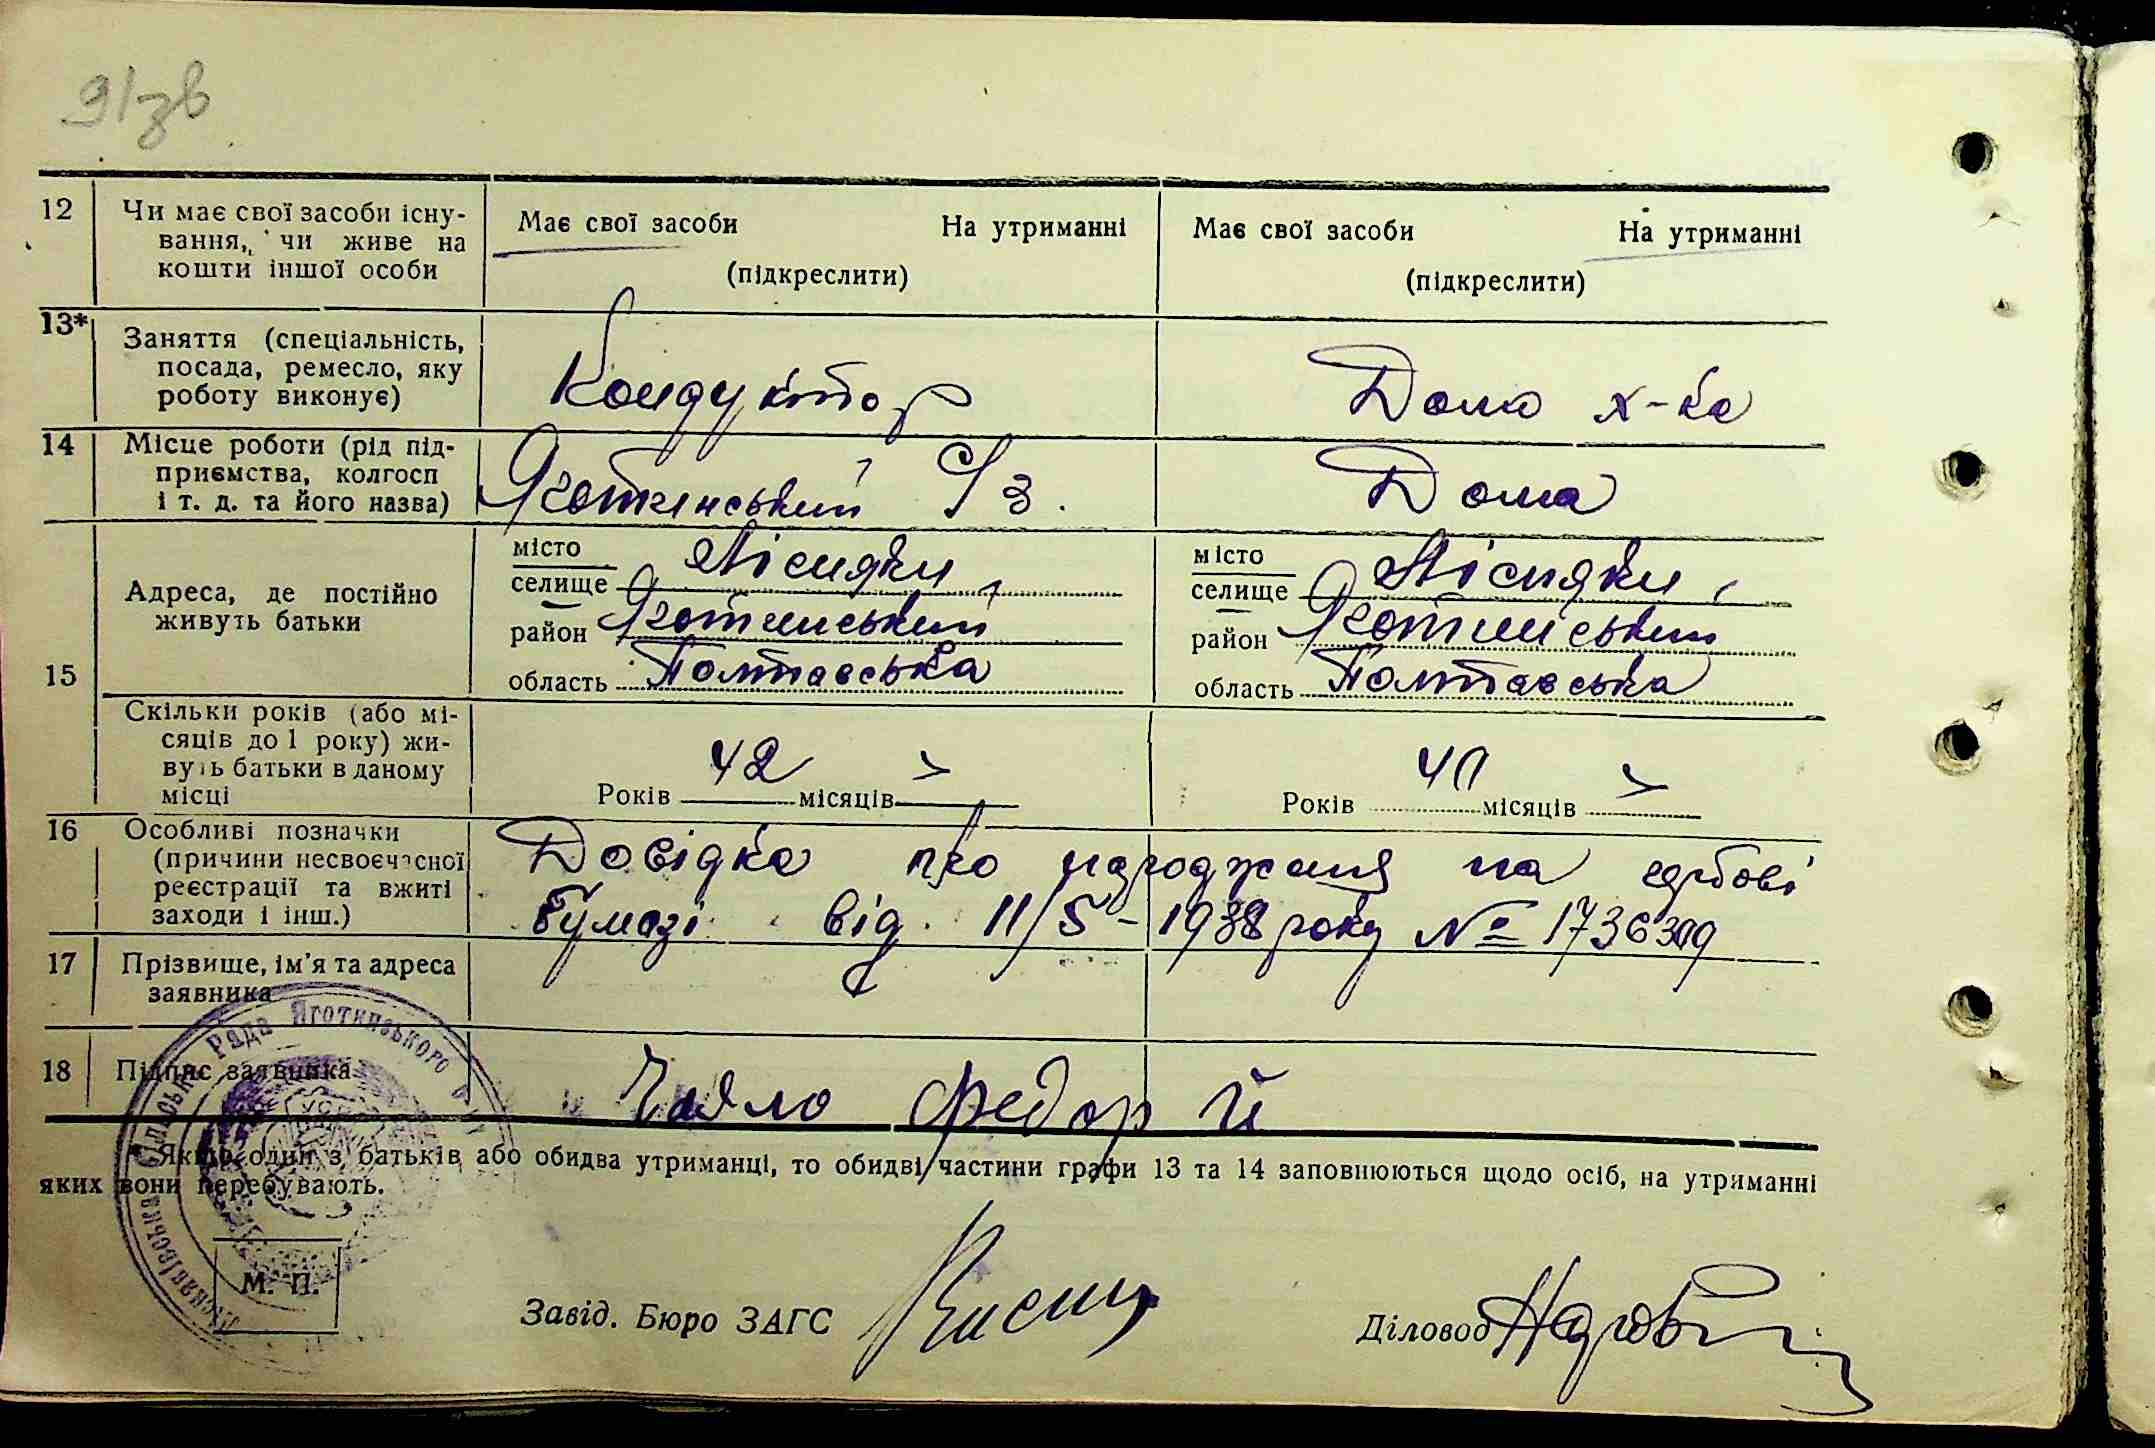 91зв
12 Чи має свої засоби існу-
вання, чи живе на
кошти іншої особи
Має свої засоби На утриманні
(підкреслити)
Має свої засоби На утриманні
(підкреслити)
13* Заняття (спеціальність,
посада, ремесло, яку
роботу виконує)
Кондуктор
Дома х-ка
14 Місце роботи (рід під-
приємства, колгосп
і т. д. та його назва)
Яготинський С/З.
Дома
15 Адреса, де постійно
живуть батьки
місто
селище Лісняки,
район Яготинський
область Полтавська
місто
селище Лісняки,
район Яготинський
область Полтавська
Скільки років (або мі-
сяців до 1 року) жи-
вуть батьки в даному
місці
Років 42 місяців
Років 40 місяців
16 Особливі позначки
(причини несвоєчасної
реєстрації та вжиті
заходи і інш.)
Довідка про народжаня на гербові
бумазі від 11/5-1938 року № 1736309
17 Прізвище, ім'я та адреса
заявника
18 Підпис заявника
Чайло Федор И
* Якщо один з батьків або обидва утриманці, то обидві частини графи 13 та 14 заповнюються щодо осіб, на утриманні
яких вони перебувають.
Сільська Рада Яготинського
М. П.
Завід. Бюро ЗАГС
Діловод